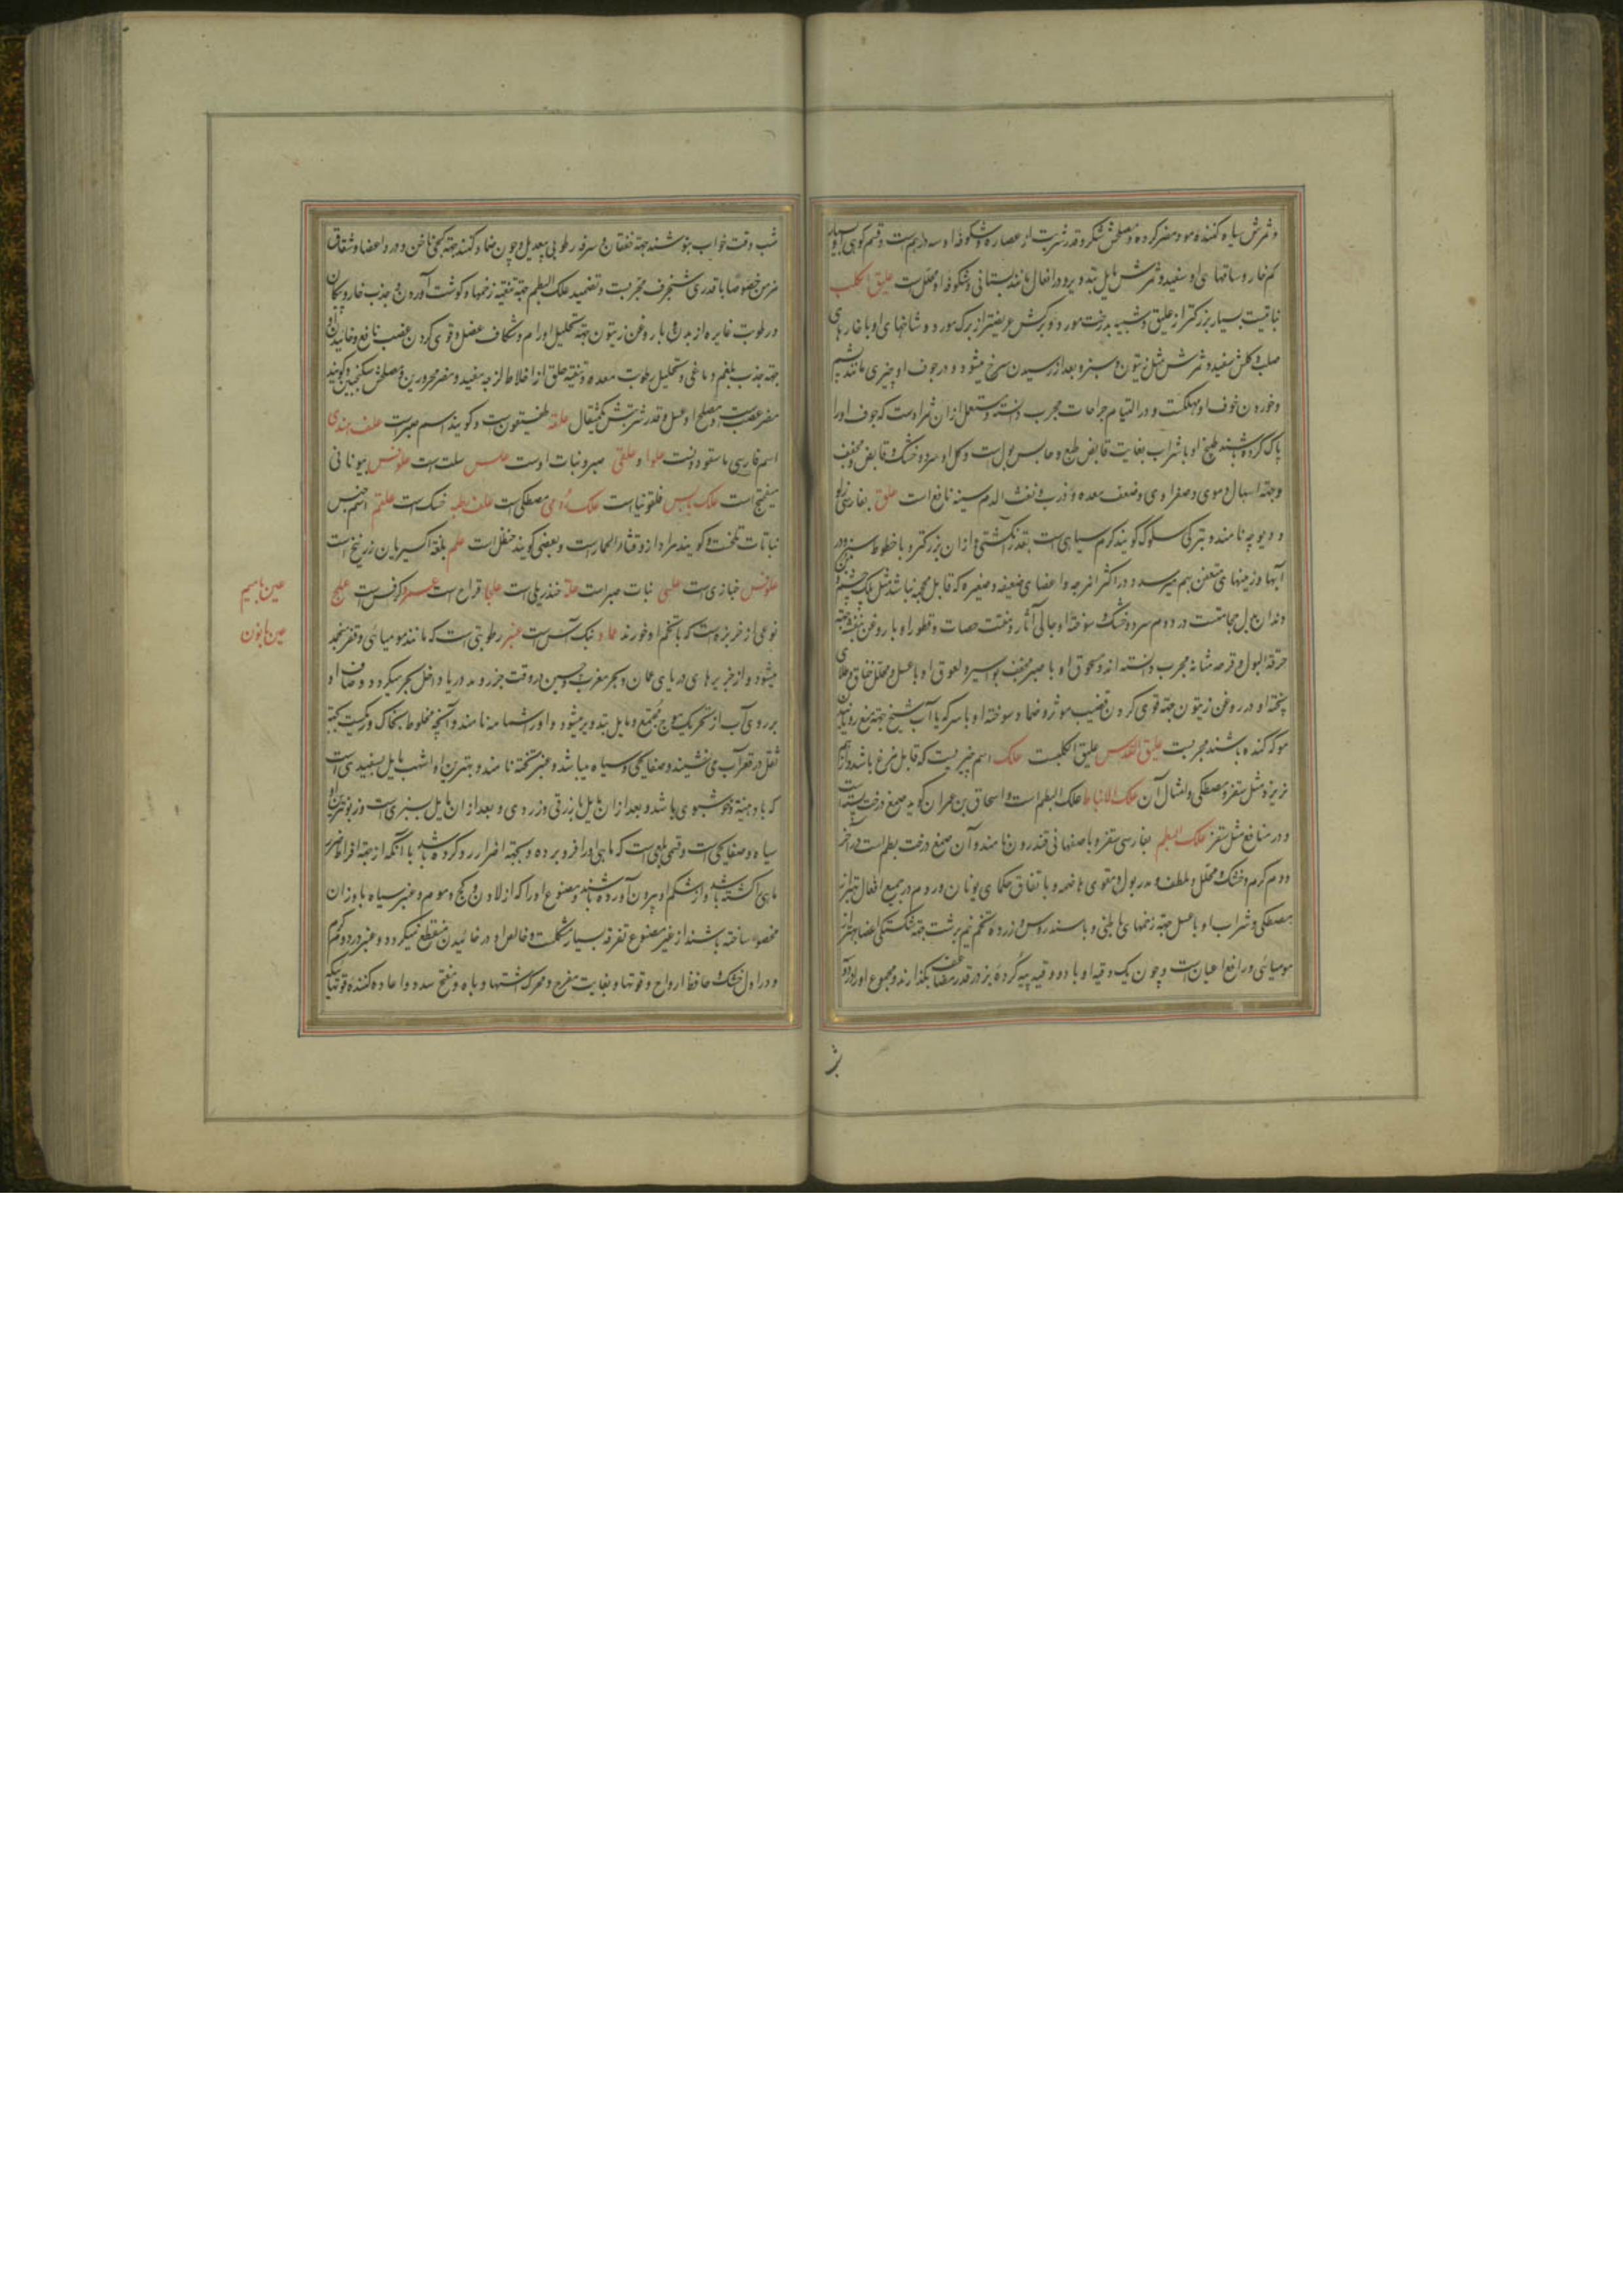 و ثمرش سیاه کننده مو و مضر گرده و مصلحش شکر و قدر شربت از عصاره و شکوفه او سه درهم است و قسم کوهی او بسیار
کم خار و ساقهای او سفید و ثمرش مایل بتدویر و در افعال مانند بستانی و شکوفه او محلل است علیق الکلب
نباتیست بسیار بزرکتر از علیق و شبیه بدرخت مورد و برکش عریضتر از برک مورد و شاخهای او با خارهای
صلب و کلش سفید و ثمرش مثل زیتون و سبز و بعد از رسیدن سرخ میشود و در جوف او چیزی مانند پشم
و خوردن جوف او مهلکست و در التیام جراحات مجرب دانسته و مستعمل از آن ثمر اوست که جوف او را
پاک کرده باشند طبیخ او با شراب بغایت قابض طبع و حابس بول است و کل او سرد و خشک و قابض و مجفف
و جهة اسهال دموی و صفراوی و ضعف معده و ذرب و نفث الدم سینه نافع است علق بفارسی زلو
و دیوچه نامند و بترکی سلوک گویند کرم سیاهی است بقدر انکشتی و از آن بزرکتر و با خطوط سبز و در
آبها و زمینهای متعفن بهم میرسد و در اکثر امزجه و اعضای ضعیفه و صغیره که قابل محجمه نباشد مثل پلک چشم و بن
دندان بدل حجامتست در دوم سرد و خشک و سوخته او جالی آثار و مفتت حصات و قطور او با روغن بنفشه جهة
حرقة البول و قرحه مثانه مجرب دانسته اند و سحوق او با صبر مجفف بواسیر و لعوق او با عسل محلل خناق و طلای
پخته او در روغن زیتون جهة قوی کردن قضیب موثر و ضماد سوخته او با سرکه یا آب شیخ جهة منع روئیدن
مو که کنده باشند مجربست علیق القدس علیق الکلبست علک اسم چیزیست که قابل مضغ باشد و از هم
نریزد مثل سقز و مصطکی و امثال آن علک الانباط علک البطم است و اسحاق بن عمران گوید صمغ درخت پسته است
و در منافع مثل سقز علک البطم بفارسی سقز و باصفهانی قندرون نامند و آن صمغ درخت بطم است در آخر
دوم گرم و خشک و محلل و ملطف و مدر بول و مقوی هاضمه و باتفاق حکمای یونان و روم در جمیع افعال بهتر از
مصطکی و شراب او با عسل جهة زخمهای باطنی و با سندروس و زرده تخم نیم برشت جهة شکستکی اعضا بهتر از
مومیائی و رافع اعیاست و چون یک وقیه او با دو وقیه پیه گرده بز در قدر مضاعف بگدازند و مجموع او را در دو
شب وقت خواب بنوشند جهة خفقان و سرفه رطوبی بیعدیل و چون ضماد کنند جهة کجی ناخن و درد اعضا و شقاق
مزمن خصوصا با قدری شنجرف مجربست و تضمید علک البطم جهة تنقیه زخمها و کوشت آوردن و جذب خار و پیکان
و رطوبت غایره از بدن و با روغن زیتون جهة تحلیل اورام و شکاف عضل و قوی کردن عصب نافع و خائیدن او
جهة جذب بلغم دماغی و تحلیل رطوبت معده و تنقیه حلق از اخلاط لزجه مفید و مضر محرورین و مصلحش سکنجبین و گویند
مضر عصب است و مصلح او عسل و قدر شربتش یکمثقال علقه طفیتقون است و گویند اسم صبر است علف هندی
اسم فارسی ماسقودونست علوا و علقی صبر و نبات اوست علس سلت است علونس بیونانی
میفنج است علک یابس قلقونیا است علک رومی مصطکی است علف بطه خسک است علقم اسم جنس
نباتات تلخست و گویند مراد از او قثاء الحمار است و بعضی گویند حنظل است علم بلغة اکسیریان زرنیخ است
علوفس خبازی است علسی نبات صبر است علة خندریلی است علجا قراح است عمسرم کرفس است علیج
نوعی از خربزه است که با تخم او خورند عماد نبک آس است عنبر رطوبتی است که مانند مومیائی و قفر منجمد
میشود و از جزیره های دریای عمان و بحر مغرب و چین در وقت جزر و مد دریا داخل بحر میکردد و صاف او
بر روی آب از تحریک موج مجتمع و مایل بتدویر میشود و او را شمامه نامند و آنچه مخلوط بخاک و ریکست بجهة
ثقل در قعر آب می نشیند و صفایحی و سیاه میباشد و عنبر تخته نامند و بهترین او اشهب مایل بسفیدی است
که با دهنیة و خوشبوی باشد و بعد از آن مایل بازرقی و زردی و بعد از آن مایل بسبزی است و زبونترین او
سیاه و صفایحی است و قسمی بلعی است که ماهی او را فرو برده و بجهة اضرار رد کرده باشد یا آنکه از جهة افراط ضرر
ماهی را کشته باشد و از شکم او بیرون آورده باشند و مصنوع او را که از لادن و کج و موم و عنبر سیاه باوزان
مخصوصه ساخته باشند از غیر مصنوع تفرقه بسیار مشکلست و خالص او در خائیدن منقطع نمیکردد و عنبر در دوم گرم
و در اول خشک و حافظ ارواح و قوتها و بغایت مفرح و محرک اشتها و باه و مفتح سدد و اعاده کننده قوتهائیکه
عین باسیم
عین بابون